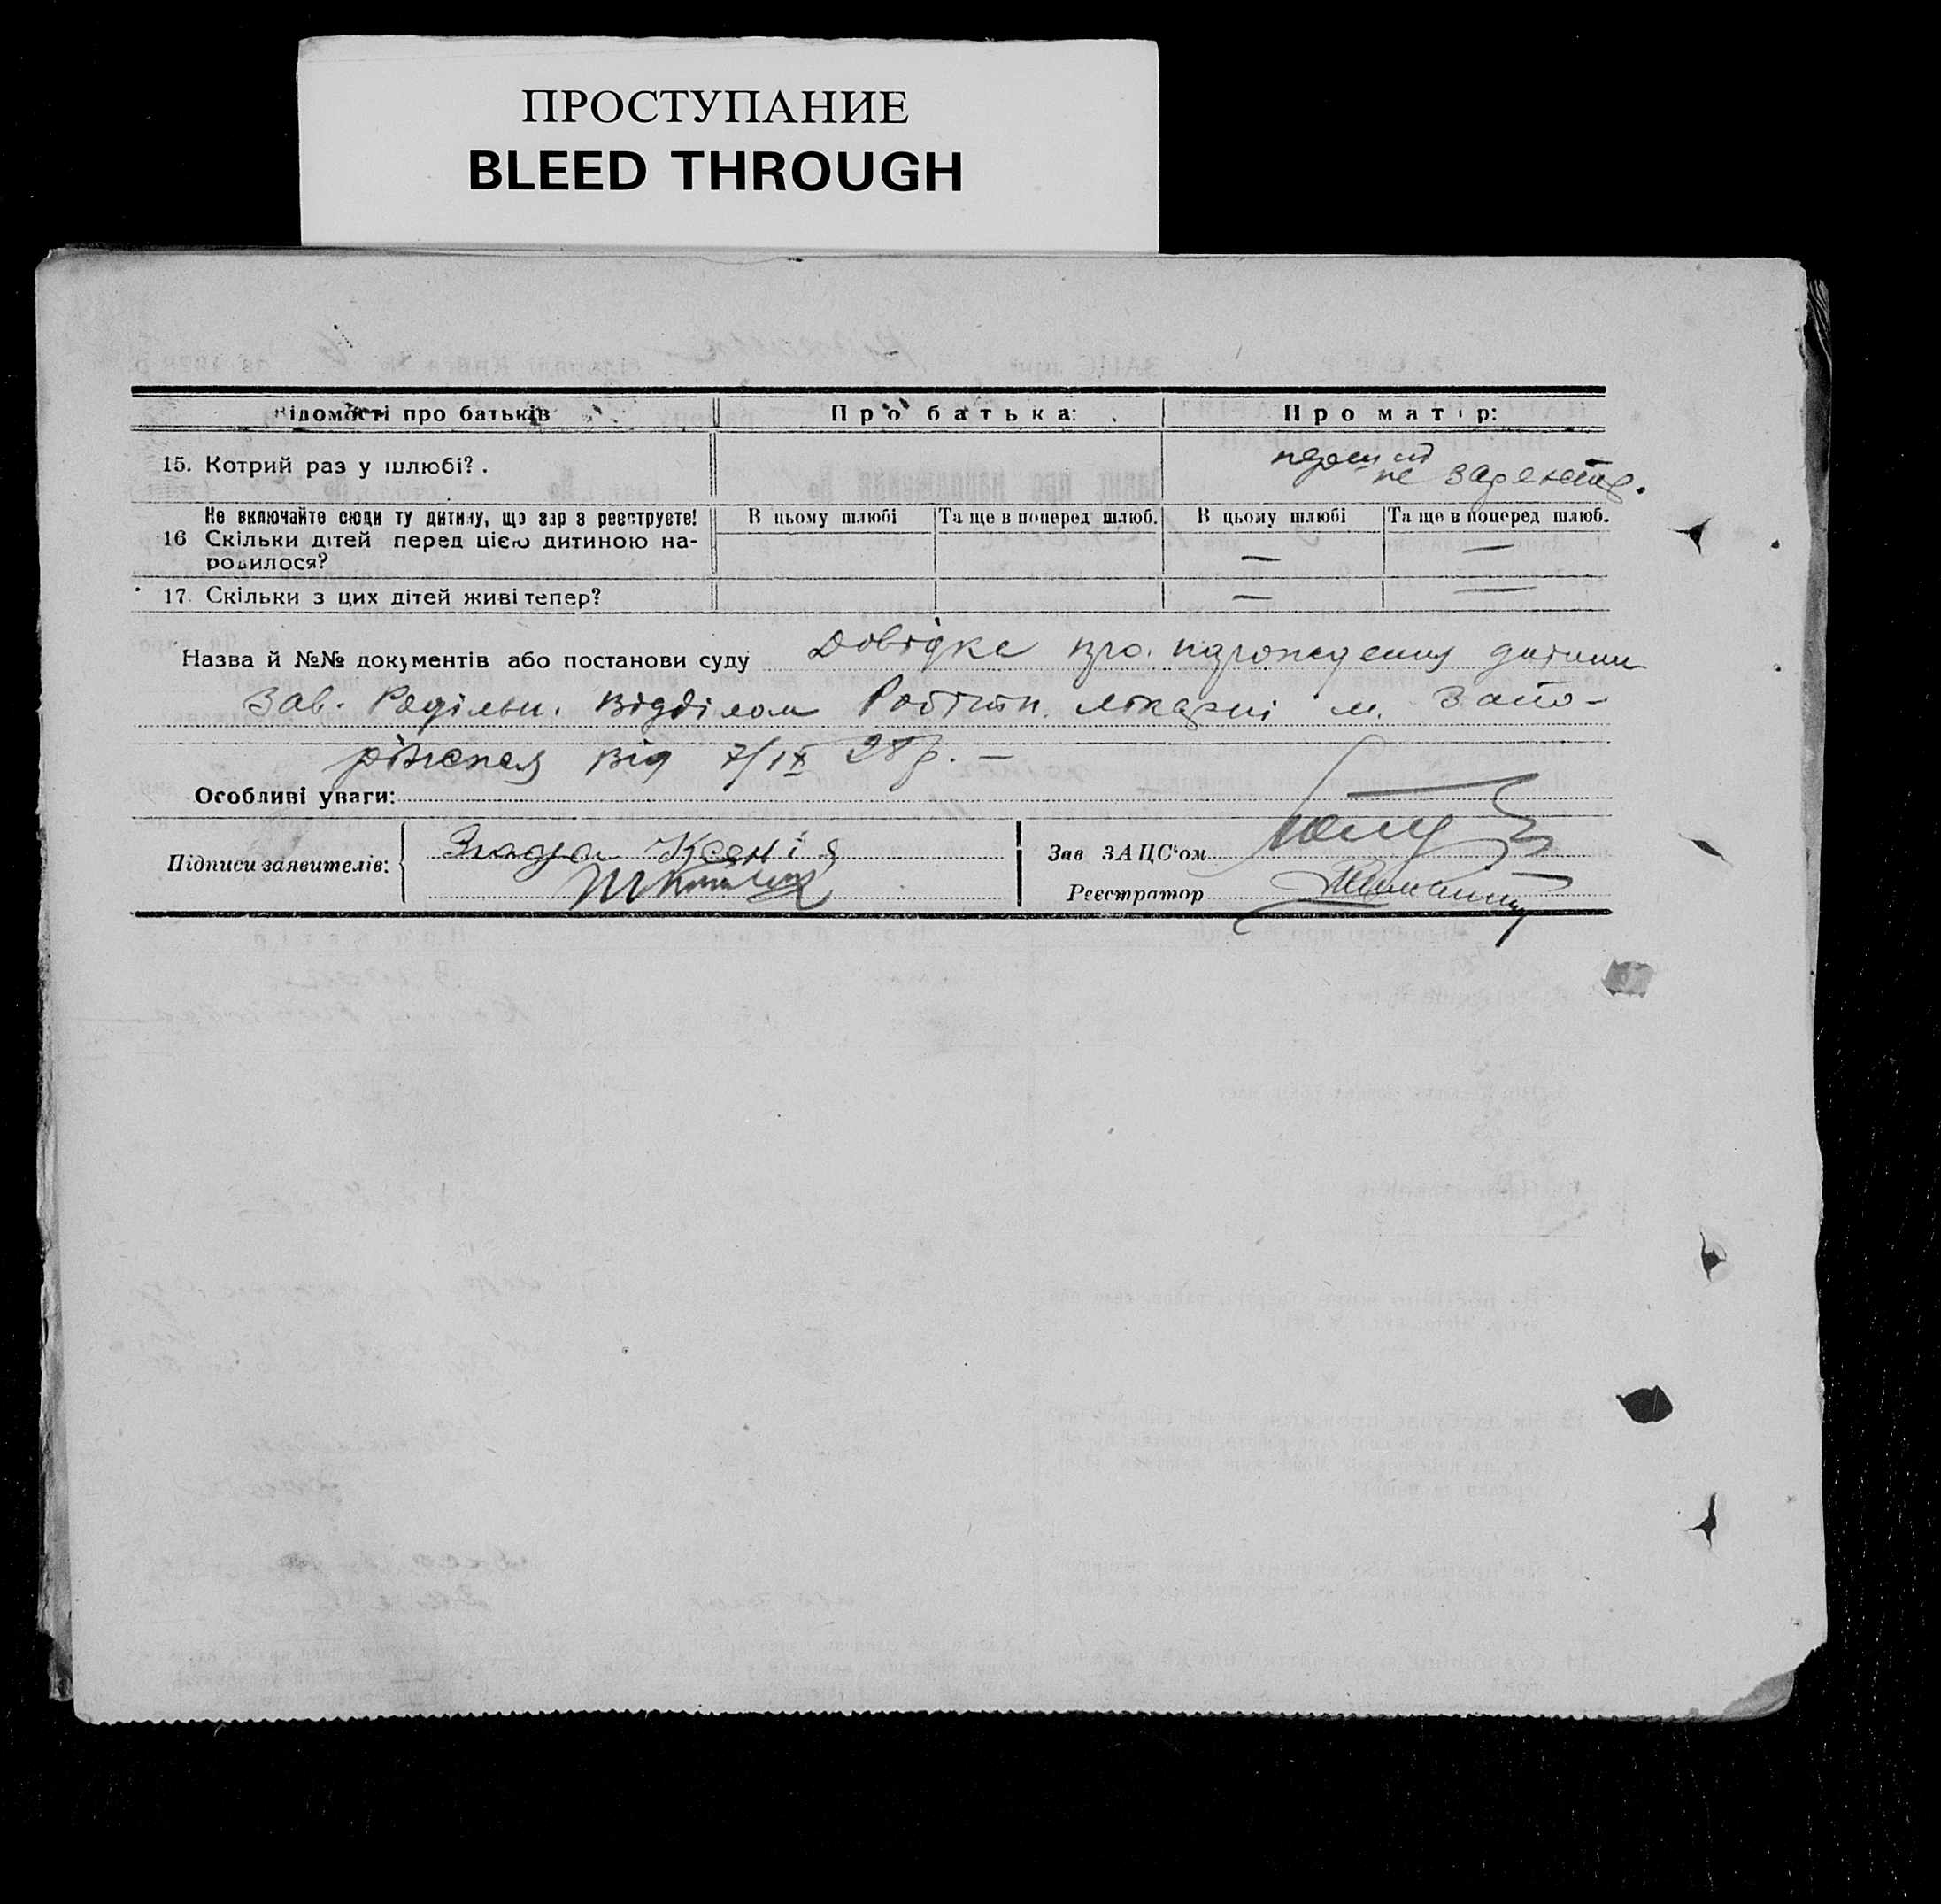 ПРОСТУПАНИЕ
BLEED THROUGH
Відомості про батьків Про батька: Про матір:
15. Котрий раз у шлюбі?. не зареєстр.
Не включайте сюди ту дитину, що зар з реєструєте! В цьому шлюбі Та ще в поперед шлюб. В цьому шлюбі Та ще в поперед шлюб.
16 Скільки дітей перед цією дитиною на- — —
родилося?
17. Скільки з цих дітей живі тепер? — —
Назва й №№ документів або постанови суду Довідка про народження дитини
Зав. Родільн. Відділом Робітн. лікарні м. Запо-
ріжжя від 7/IX 28 р. —
Особливі уваги:
Підписи заявителів: Ксенія
Зав ЗАЦС'ом
Реєстратор